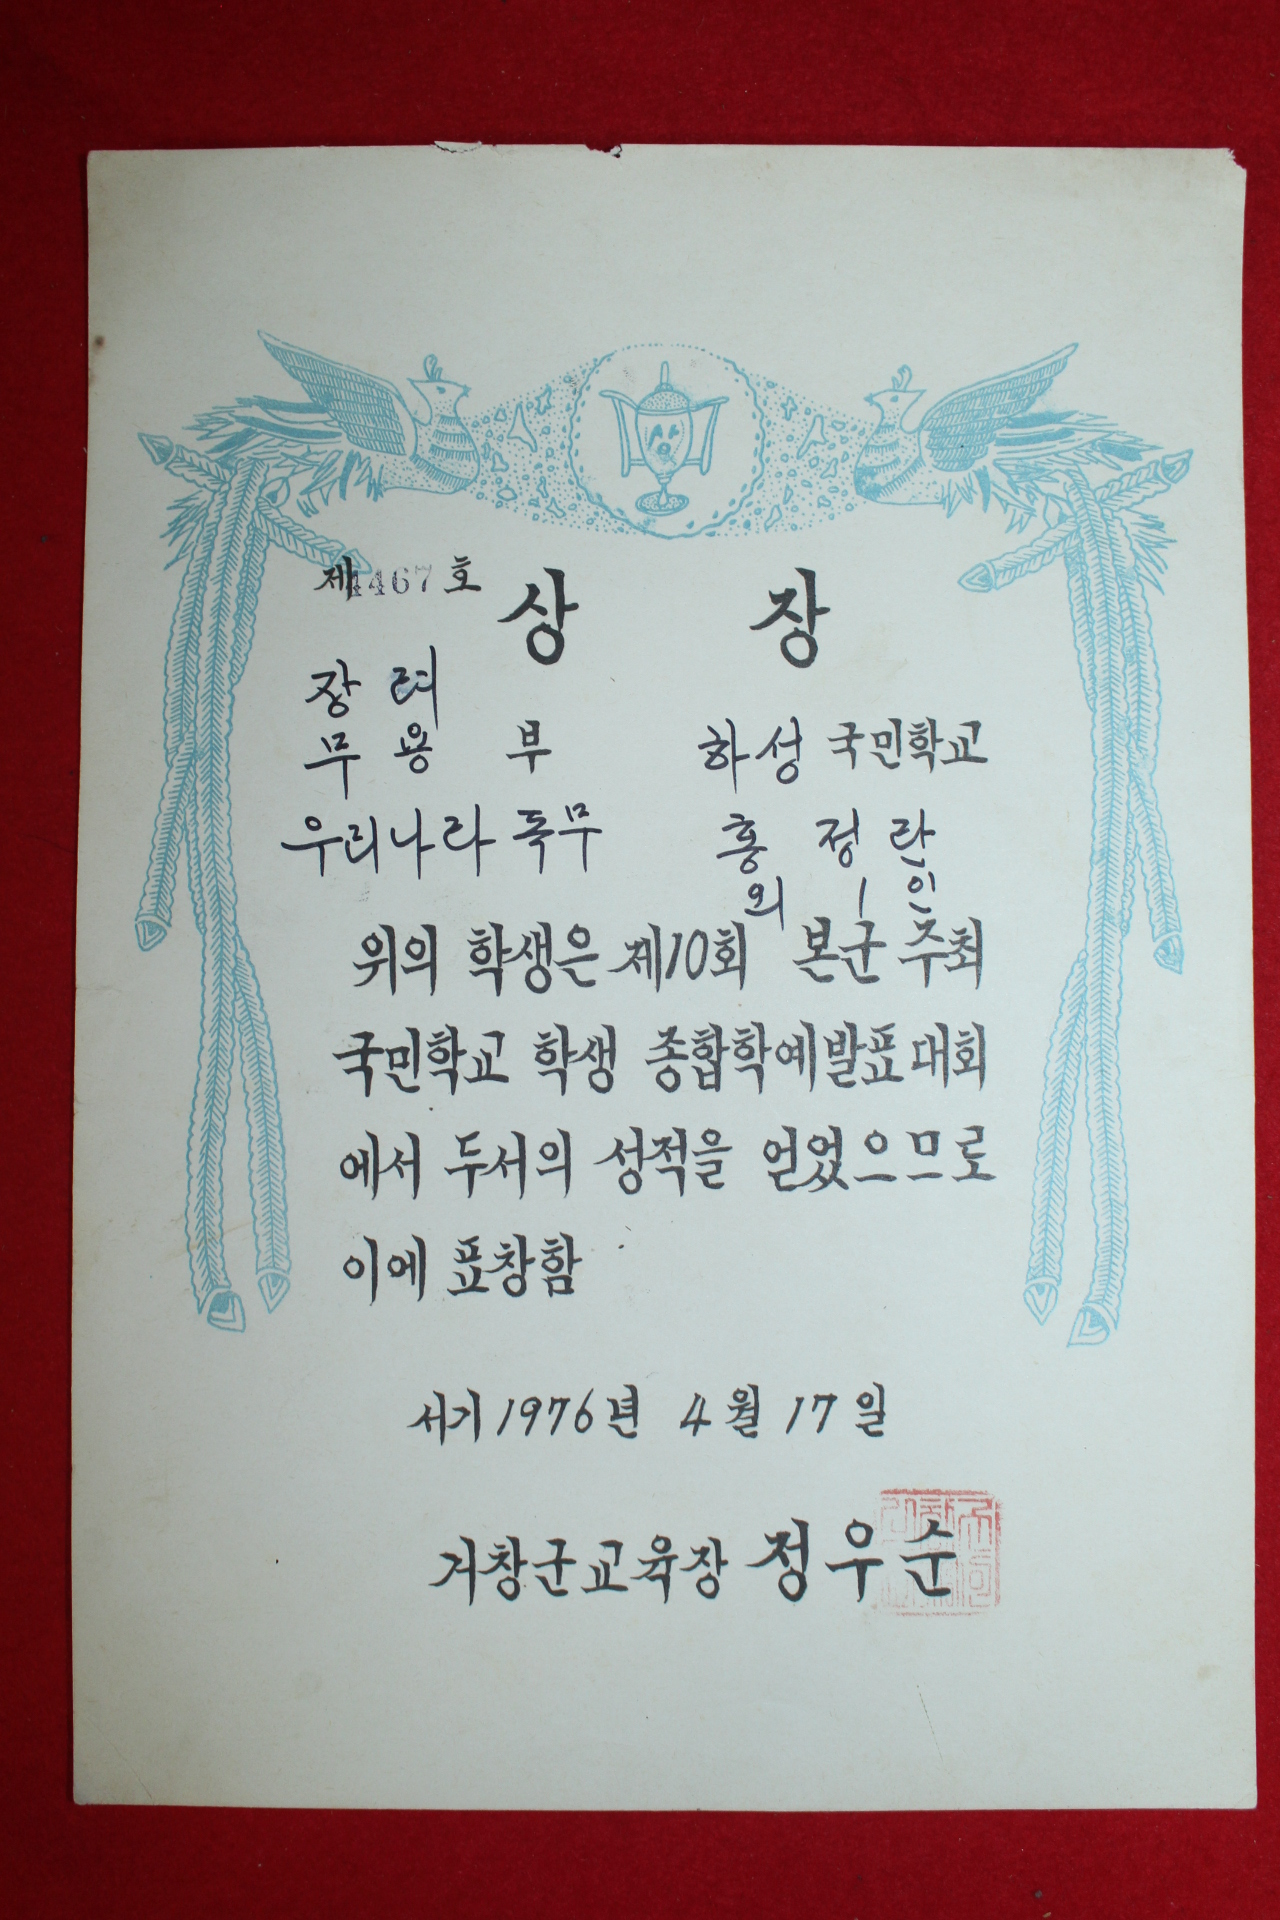 제4467호
상 장
장려
무용 부
하성 국민학교
우리나라 독무
홍정란
외 1 인
위의 학생은 제10회 본군 주최
국민학교 학생 종합학예발표대회
에서 두서의 성적을 얻었으므로
이에 표창함
서기 1976년 4월 17일
거창군교육장 정우순